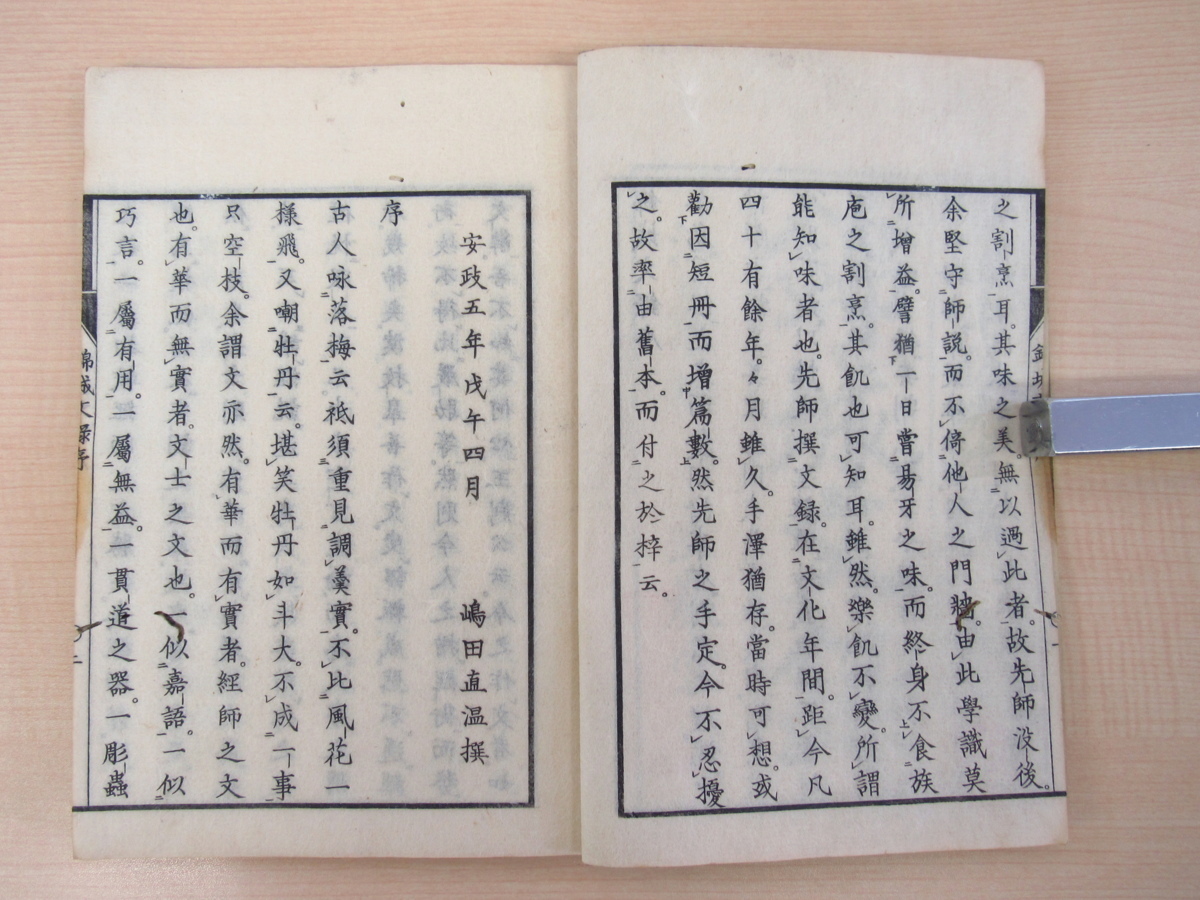 之割烹耳。其味之美無以過此者。故先師没後。
余堅守師説。而不倚他人之門牆。由此學識莫
所増益。譬猶一日嘗易牙之味。而終身不食族
庖之割烹。其飢也可知耳。雖然樂飢不變。所謂
能知味者也。先師撰文録。在文化年間。距今凡
四十有餘年。々月雖久。手澤猶存。當時可想。或
勸因短冊而増篇數。然先師之手定。今不忍擾
之。故率由舊本。而付之於梓云。
安政五年戊午四月　嶋田直温撰
序
古人咏落梅云祗須重見調羹實。不比風花一
様飛。又嘲牡丹云。堪笑牡丹如斗大。不成一事
只空枝。余謂文亦然。有華而有實者。經師之文
也。有華而無實者。文士之文也。一似嘉語。一似
巧言。一屬有用。一屬無益。一貫道之器。一彫蟲
錦城文録序